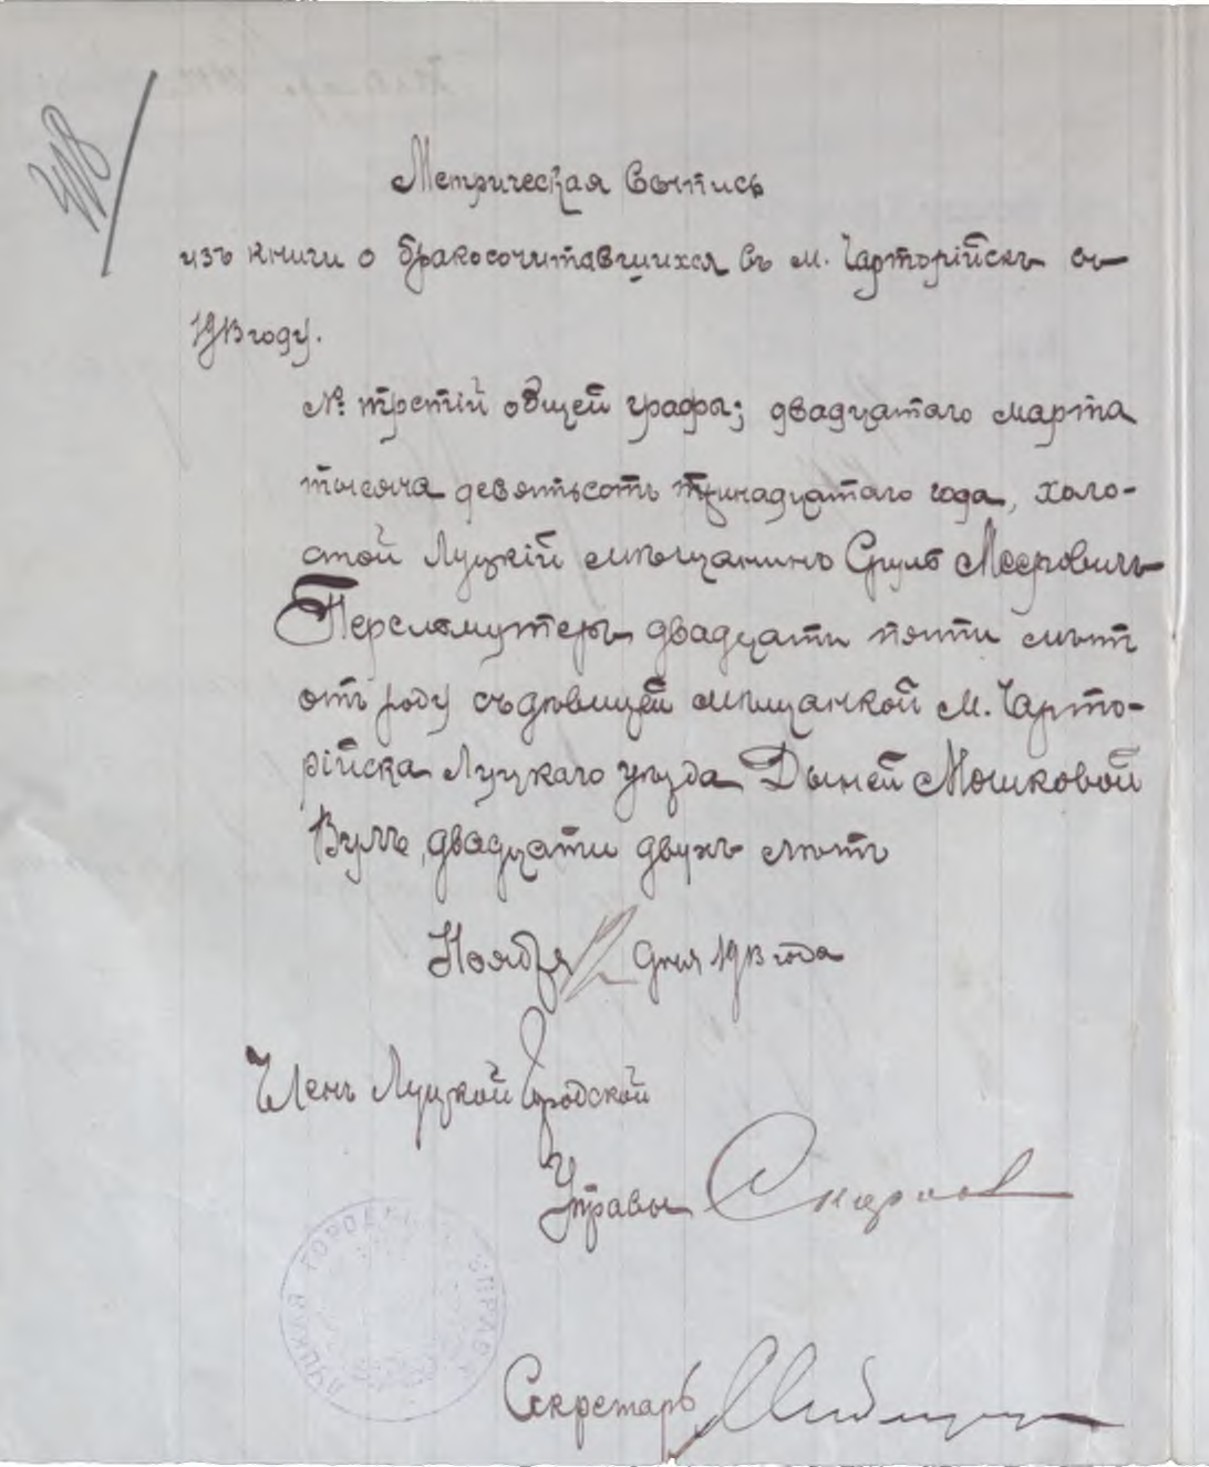 Метрическая выпись
изъ книги о бракосочитавшихся въ м. Чарторійскъ въ
1913 году.
№ третій общей графы; двадцатаго марта
тысяча девятьсотъ тринадцатаго года, холо-
стой Луцкій мѣщанинъ Сруль Мееровичъ
Перельмутеръ двадцати пяти лѣтъ
отъ роду съ дѣвицей мѣщанкой М. Чарто-
рійска Луцкаго уѣзда Дыней Мошковой
Вулъ, двадцати двухъ лѣтъ
Ноября дня 1913 года
Членъ Луцкой Городской
Управы
ЛУЦКАЯ ГОРОДСКАЯ УПРАВА
Секретарь